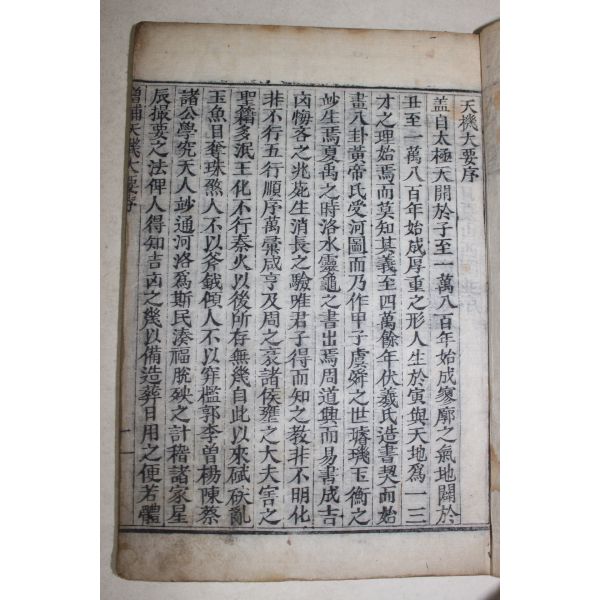 天機大要序
盖自太極天開於子至一萬八百年始成寥廓之氣地闢於
丑至一萬八百年始成厚重之形人生於寅與天地爲一三
才之理始焉而莫知其義至四萬餘年伏羲氏造書契而始
畫八卦黃帝氏受河圖而乃作甲子虞舜之世璿璣玉衡之
妙生焉夏禹之時洛水靈龜之書出焉周道興而易書成吉
凶悔吝之兆庇生消長之驗唯君子得而知之敎非不明化
非不行五行順序萬彙咸亨及周之衰諸侯壅之大夫害之
聖籍多泯王化不行秦火以後所存無幾自此以來碔砆亂
玉魚目奪珠煞人不以斧鉞傾人不以穽檻郭李曾楊陳蔡
諸公學究天人妙通河洛爲斯民湊福脫殃之計稽諸家星
辰撮要之法俾人得知吉凶之幾以備造葬日用之便若體
增補天機大要序
一